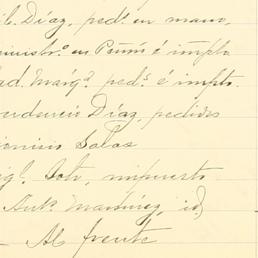 Díaz, ped.s en man,
ministr.o en é impto
ad. Marg.a ped.s é impto.
Díaz, pedidos
ionisio Salas
ig.l Soto, impuesto
Ant.o Martínez, id,
Al frente